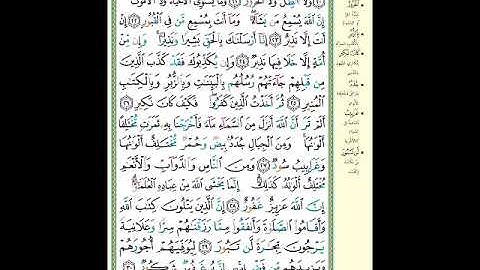 وَلَا ٱلظِّلُّ وَلَا ٱلْحَرُورُ ٢١ وَمَا يَسْتَوِى ٱلْأَحْيَآءُ وَلَا ٱلْأَمْوَٰتُ
إِنَّ ٱللَّهَ يُسْمِعُ مَن يَشَآءُ وَمَآ أَنتَ بِمُسْمِعٍ مَّن فِى ٱلْقُبُورِ ٢٢ إِنْ
أَنتَ إِلَّا نَذِيرٌ ٢٣ إِنَّآ أَرْسَلْنَٰكَ بِٱلْحَقِّ بَشِيرًا وَنَذِيرًا وَإِن مِّنْ
أُمَّةٍ إِلَّا خَلَا فِيهَا نَذِيرٌ ٢٤ وَإِن يُكَذِّبُوكَ فَقَدْ كَذَّبَ ٱلَّذِينَ
مِن قَبْلِهِمْ جَآءَتْهُمْ رُسُلُهُم بِٱلْبَيِّنَٰتِ وَبِٱلزُّبُرِ وَبِٱلْكِتَٰبِ
ٱلْمُنِيرِ ٢٥ ثُمَّ أَخَذْتُ ٱلَّذِينَ كَفَرُوا۟ فَكَيْفَ كَانَ نَكِيرِ ٢٦
أَلَمْ تَرَ أَنَّ ٱللَّهَ أَنزَلَ مِنَ ٱلسَّمَآءِ مَآءً فَأَخْرَجْنَا بِهِۦ ثَمَرَٰتٍ مُّخْتَلِفًا
أَلْوَٰنُهَا وَمِنَ ٱلْجِبَالِ جُدَدٌۢ بِيضٌ وَحُمْرٌ مُّخْتَلِفٌ أَلْوَٰنُهَا
وَغَرَابِيبُ سُودٌ ٢٧ وَمِنَ ٱلنَّاسِ وَٱلدَّوَآبِّ وَٱلْأَنْعَٰمِ
مُخْتَلِفٌ أَلْوَٰنُهُۥ كَذَٰلِكَ إِنَّمَا يَخْشَى ٱللَّهَ مِنْ عِبَادِهِ ٱلْعُلَمَٰٓؤُا۟
إِنَّ ٱللَّهَ عَزِيزٌ غَفُورٌ ٢٨ إِنَّ ٱلَّذِينَ يَتْلُونَ كِتَٰبَ ٱللَّهِ
وَأَقَامُوا۟ ٱلصَّلَوٰةَ وَأَنفَقُوا۟ مِمَّا رَزَقْنَٰهُمْ سِرًّا وَعَلَانِيَةً
يَرْجُونَ تِجَٰرَةً لَّن تَبُورَ ٢٩ لِيُوَفِّيَهُمْ أُجُورَهُمْ
وَيَزِيدَهُم مِّن فَضْلِهِۦٓ إِنَّهُۥ غَفُورٌ شَكُورٌ ٣٠